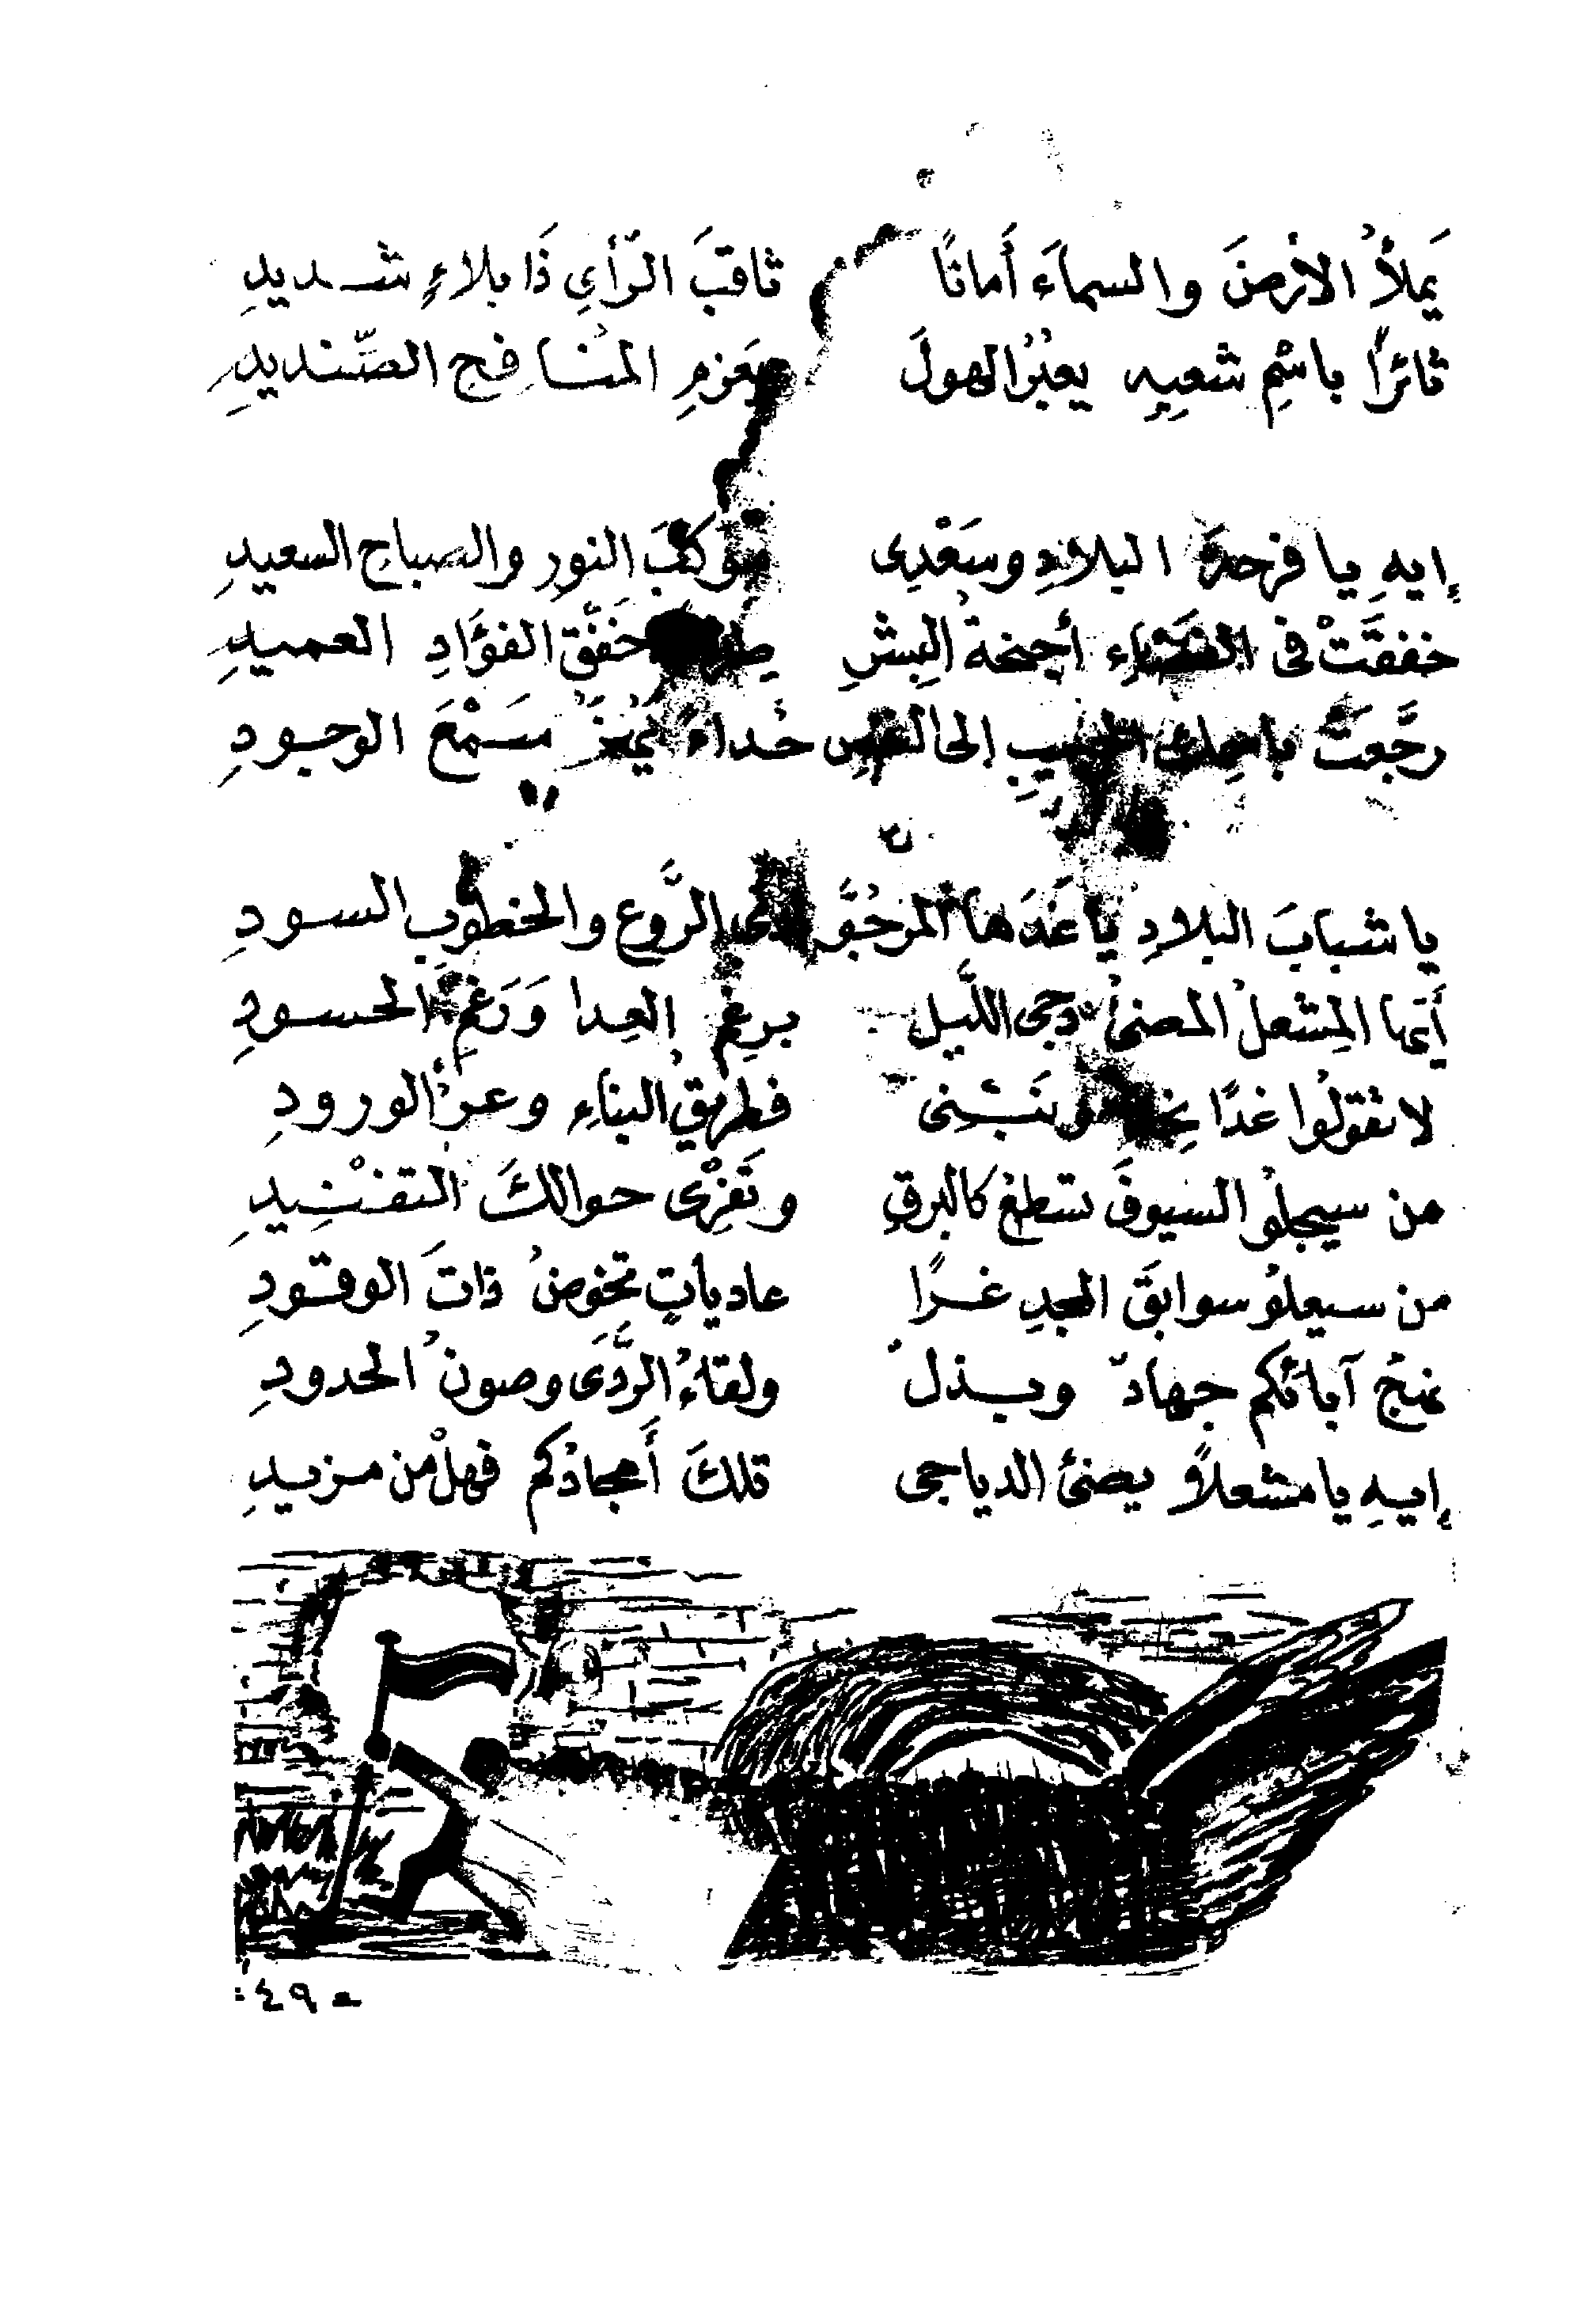 يَملأُ الأرضَ والسماءَ أَمانًا ثاقبَ الرّأيِ ذَا بلاءٍ شديدِ
ثائرًا باسْمِ شعبِهِ يعبُرُ الهولَ بعَزمِ المُنافحِ الصّنديدِ
إيهِ يا فرحةَ البلادِ وسَعْدِى موكبَ النورِ والصباحِ السعيدِ
خفقَتْ فى الفضاءِ أجنحةُ البِشْرِ خَفْقَ الفؤَادِ العميدِ
رجَّعَتْ باسمِكِ الحبيبِ إلى النفسِ حُداءً يَهُزُّ سَمْعَ الوجودِ
يا شبابَ البلادِ يا غَدَها المرجُوَّ الرَّوعِ والخطوبِ السودِ
أيّها المِشعلُ المضئُ دجى اللَّيلِ برغمِ العِدا وَرَغمَ الحسودِ
لا تقولُوا غدًا ونَبْنِى فطريقُ البناءِ وعرُ الورودِ
من سيجلُو السيوفَ تسطعُ كالبرقِ وتَفْرِى حوالكَ التفنيدِ
من سيعلُو سوابقَ المجدِ غرًّا عادياتٍ تخوضُ ذاتَ الوقودِ
نهجُ آبائكم جهادٌ وبذلٌ ولقاءُ الرَّدَى وصونُ الحدودِ
إيهِ يا مشعلاً يضئُ الدياجى تلكَ أَمجادُكم فهلْ من مزيدِ
٤٩